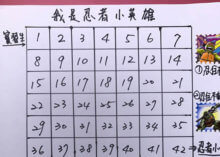 我是忍者小英雄
實習生 1 2 3 4 5 6 7
8 9 10 11 12 13 14
15 16 17 18 19 20 21
22 23 24 25 26 27 28
29 30 31 32 33 34 35
36 37 38 39 40 41 42
①
②
忍者小